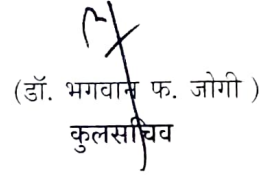 (डॉ. भगवान फ. जोगी )
कुलसचिव